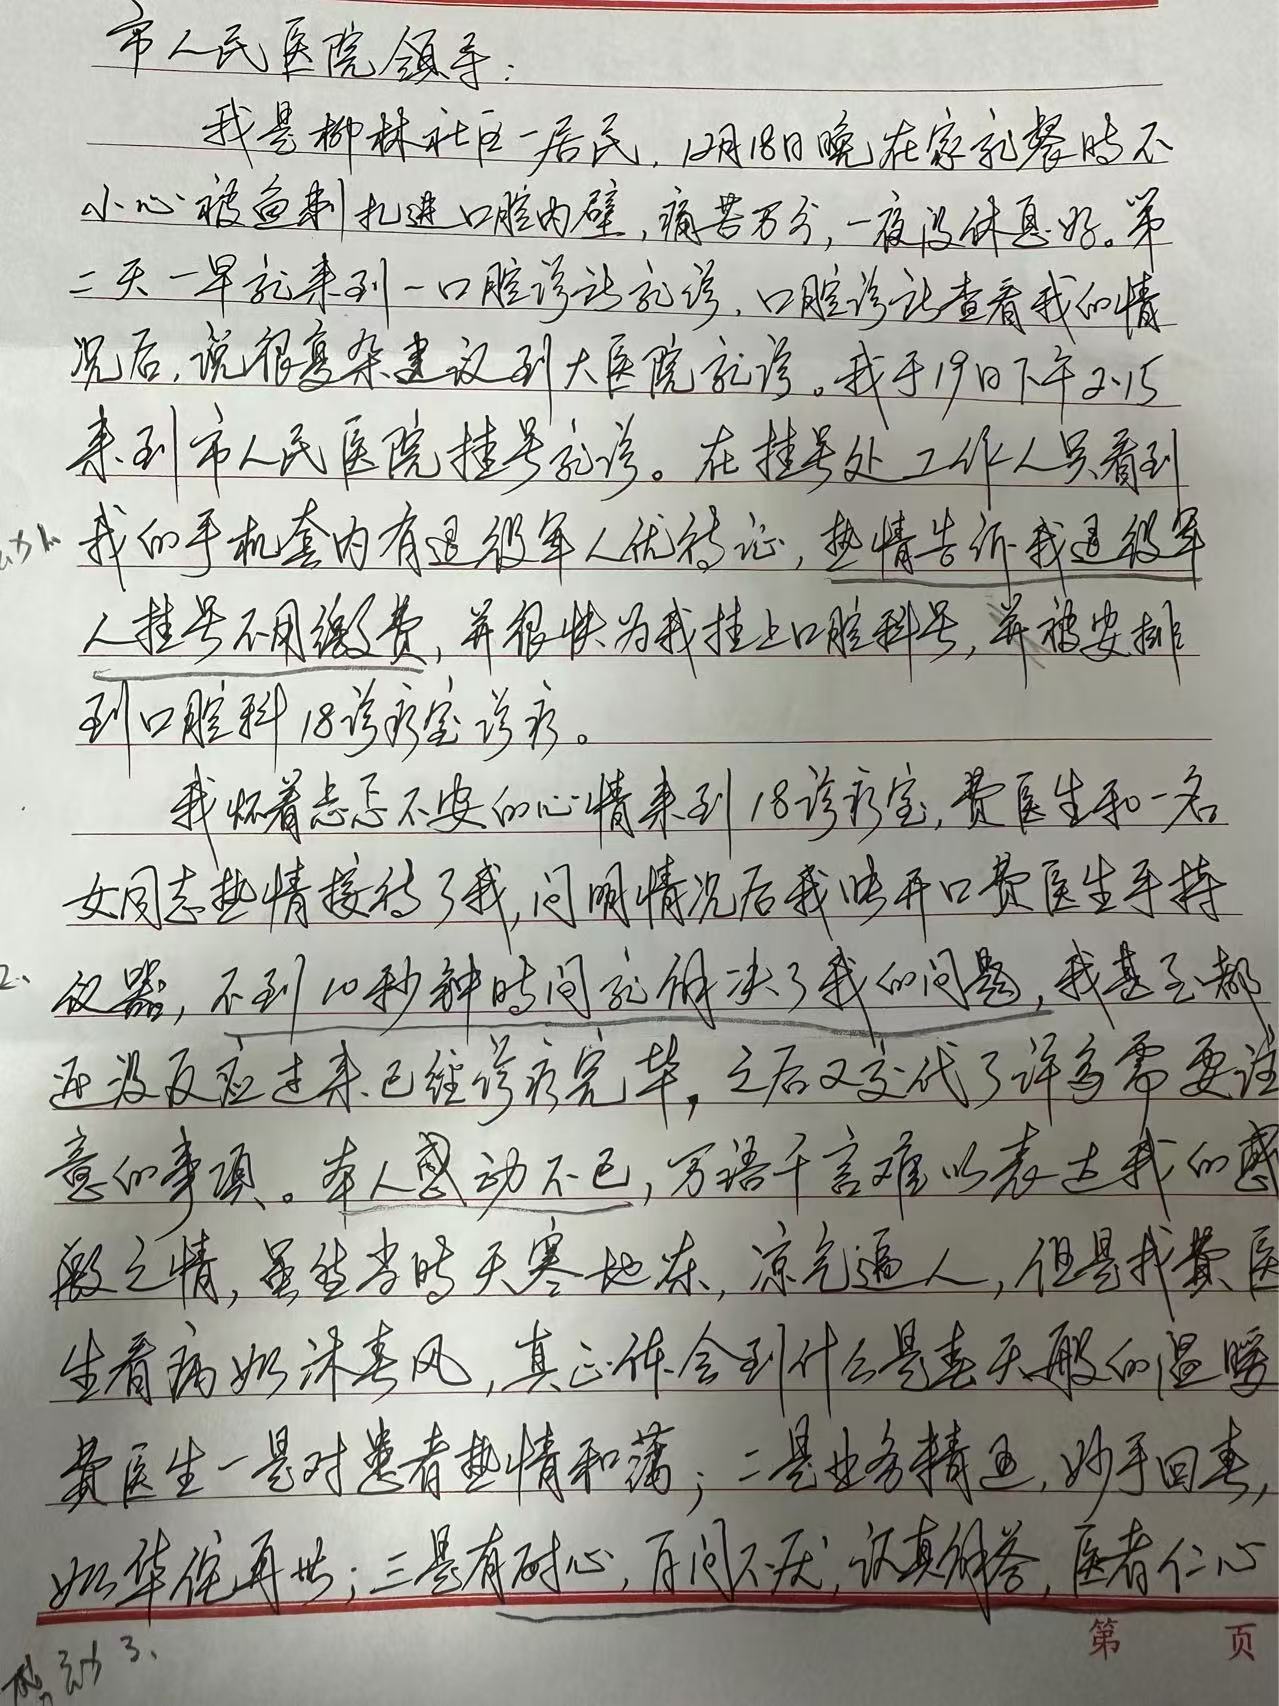 市人民医院领导：
我是柳林社区一居民，12月18日晚在家就餐时不
小心被鱼刺扎进口腔内壁，痛苦万分，一夜没休息好。第
二天一早就来到一口腔诊所就诊，口腔诊所查看我的情
况后，说很复杂建议到大医院就诊。我于19日下午2.15
来到市人民医院挂号就诊。在挂号处工作人员看到
我的手机套内有退役军人优待证，热情告诉我退役军
人挂号不用缴费，并很快为我挂上口腔科号，并被安排
到口腔科18诊疗室诊疗。
我怀着忐忑不安的心情来到18诊疗室，费医生和一名
女同志热情接待了我，问明情况后我张开口费医生手持
2、
仪器，不到10秒钟时间就解决了我的问题，我甚至都
还没反应过来已经诊疗完毕，之后又交代了许多需要注
意的事项。本人感动不已，万语千言难以表达我的感
激之情，虽然当时天寒地冻，凉气逼人，但是我费医
生看病如沐春风，真正体会到什么是春天般的温暖
费医生一是对患者热情和蔼；二是业务精通，妙手回春，
如华佗再世；三是有耐心，百问不厌，认真解答，医者仁心
第 页
感动3、